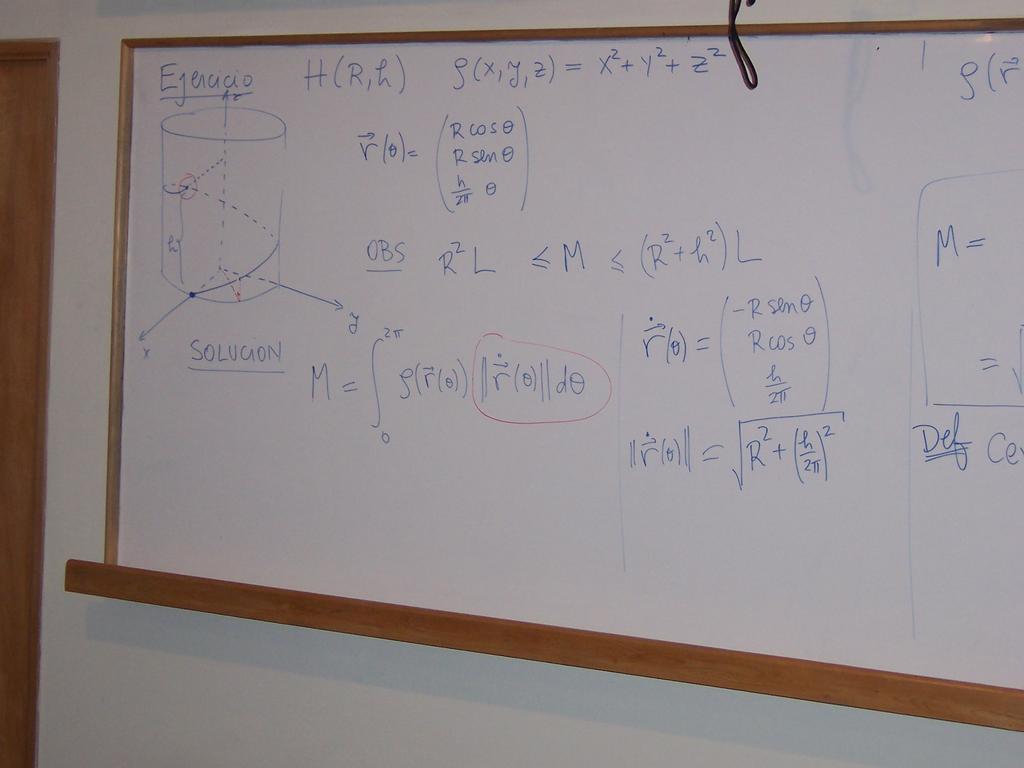 Ejercicio H(R,h) ρ(x,y,z) = x²+y²+z²
z
r⃗(θ)= (R cos θ
R sen θ
h/2π θ)
h
OBS R²L ≤ M ≤ (R²+h²)L
x
y
SOLUCION
M = ∫₀^2π ρ(r⃗(θ)) ||ṙ⃗(θ)|| dθ
ṙ⃗(θ) = (-R sen θ
R cos θ
h/2π)
||ṙ⃗(θ)|| = √(R²+(h/2π)²)
ρ(r⃗
M =
= √
Def